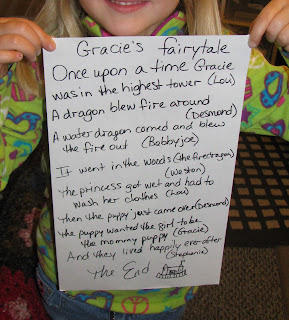 Gracie's fairytale
Once upon a time Gracie
was in the highest tower (Lou)
A dragon blew fire around
(Desmond)
A water dragon comed and blew
the fire out (Bobbyjoe)
It went in the woods (the fire dragon)
(Weston)
the princess got wet and had to
wash her clothes (Lou)
then the puppy just came over (Desmond)
the puppy wanted the girl to be
the mommy puppy (Gracie)
And they lived happily ever after
(Stephanie)
The End